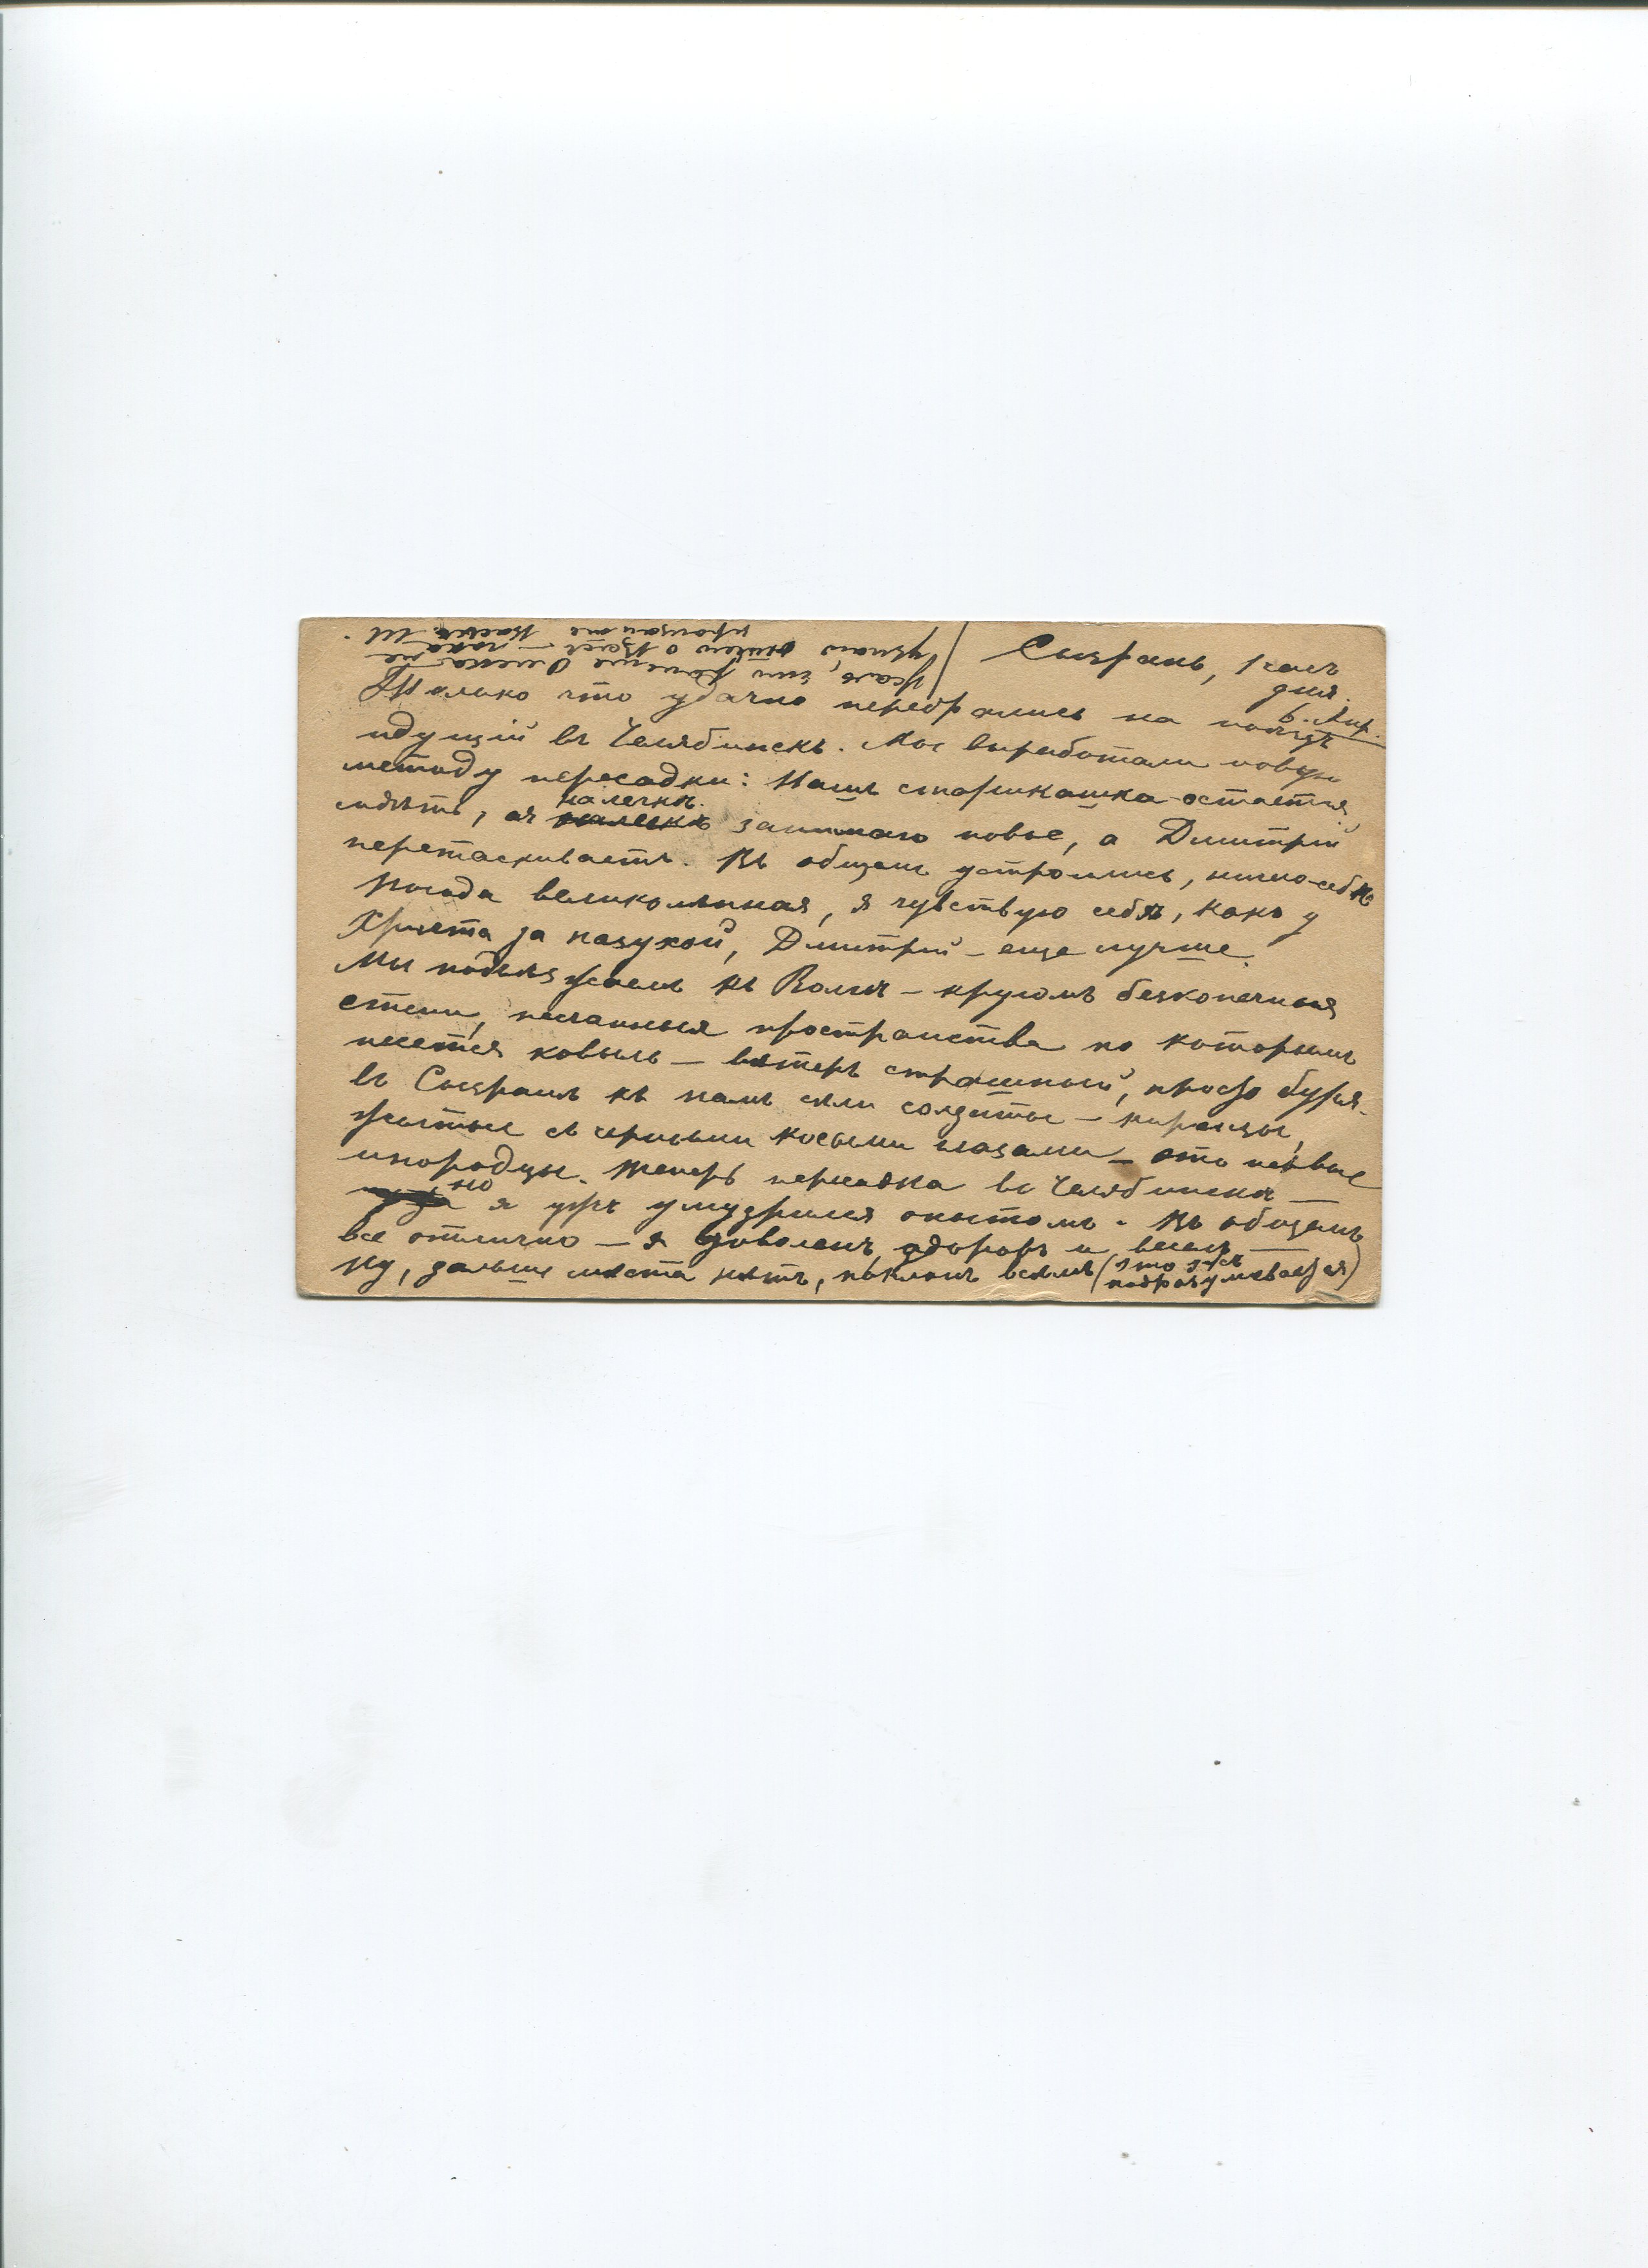 Сызрань, 1 часъ
дня.
6. Апр.
Только что удачно перебрались на поѣздъ
идущій въ Челябинскъ. Мы выработали новую
методу пересадки: Нашъ старикашка остается
сидѣть, а я налегкѣ занимаю новые, а Дмитрій
перетаскиваетъ. Въ общемъ устроились, ничего себѣ
Погода великолѣпная, я чувствую себя, какъ у
Христа за пазухой, Дмитрій – еще лучше.
Мы подъѣзжаемъ къ Волгѣ – кругомъ безконечныя
степи, песчанныя пространства по которымъ
несется ковыль – вѣтеръ страшный, просто буря.
Въ Сызрани къ намъ сѣли солдаты – киргизы,
желтые съ черными косыми глазами – это первые
инородцы. Теперь пересадка въ Челябинскѣ –
но я ужъ умудрился опытомъ. Въ общемъ
все отлично – я доволенъ, здоровъ и веселъ –
Ну, дальше мѣста нѣтъ, поклонъ всѣмъ (это здѣсь
подразумѣвается)
Жаль, что раньше Омска не
узнаю ничего о Васъ – пока
прощайте